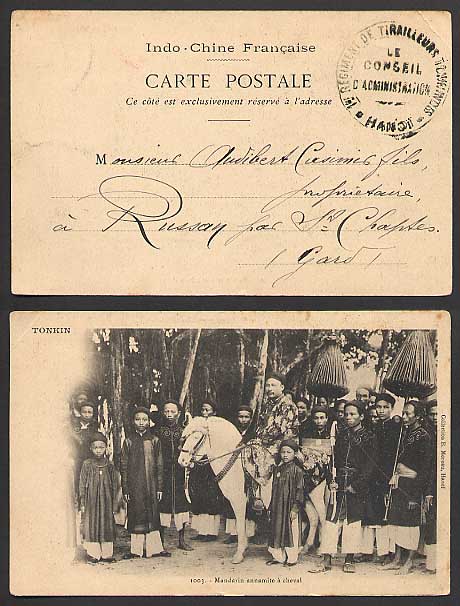 Indo-Chine Française
CARTE POSTALE
Ce côté est exclusivement réservé à l'adresse
1er REGIMENT DE TIRAILLEURS TONKINOIS
LE
CONSEIL
D'ADMINISTRATION
HANOI
Monsieur Audibert Casimir fils,
propriétaire,
à Russan par St Chaptes.
(Gard)
TONKIN
Collection R. Moreau, Hanoï
1003. - Mandarin annamite à cheval